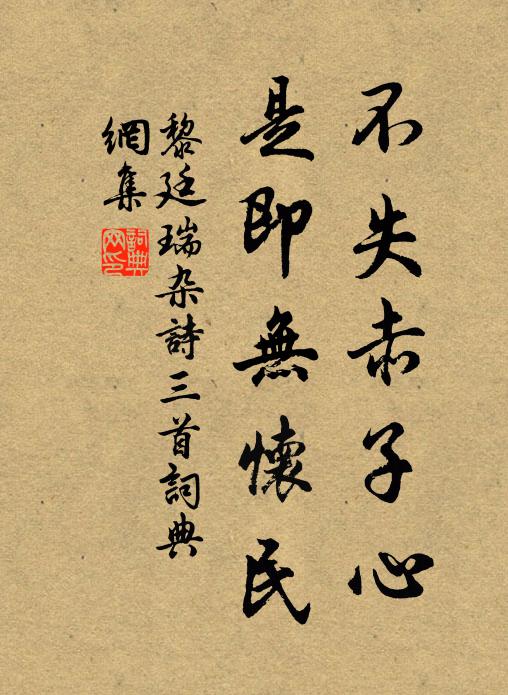 不失赤子心
是即無懷民
黎廷瑞杂詩三首詞典
網集
詞典網印